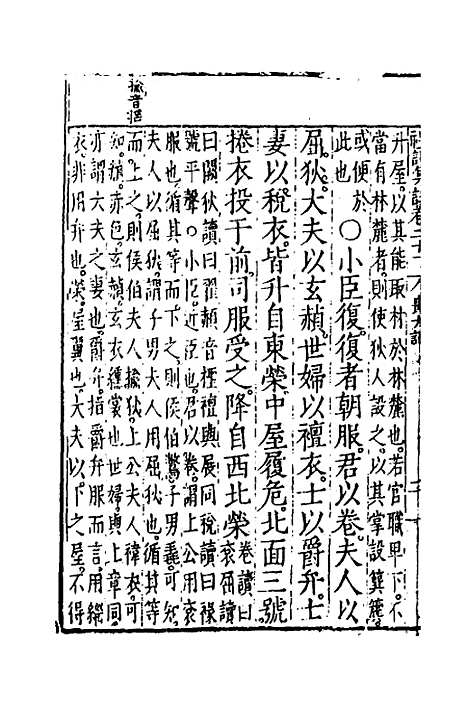 升屋。以其能取材於林麓也。若官職卑下。不
當有林麓者。則使狄人設之。以其掌設簨簴。
或便於
此也
○小臣復。復者朝服。君以卷。夫人以
屈狄。大夫以玄赬。世婦以襢衣。士以爵弁。士
妻以稅衣。皆升自東榮。中屋履危。北面三號。
捲衣投于前。司服受之。降自西北榮
卷讀曰
袞。屈讀
曰闕。狄讀曰翟。赬音檉。襢與展同。稅讀曰褖。
號平聲。○小臣。近臣也。君以卷。謂上公用袞
服也。循其等而下之。則侯伯鷩。子男毳。可知。
夫人以屈狄。謂子男夫人用屈狄也。循其等
而上之。則侯伯夫人揄狄。上公夫人褘衣可
知。赬。赤色。玄衣纁裳也。世婦。與上章同。
亦謂大夫之妻也。爵弁。指爵弁服而言。用
衣。非用弁也。榮。屋翼也。大夫以下之屋。不得
揄音